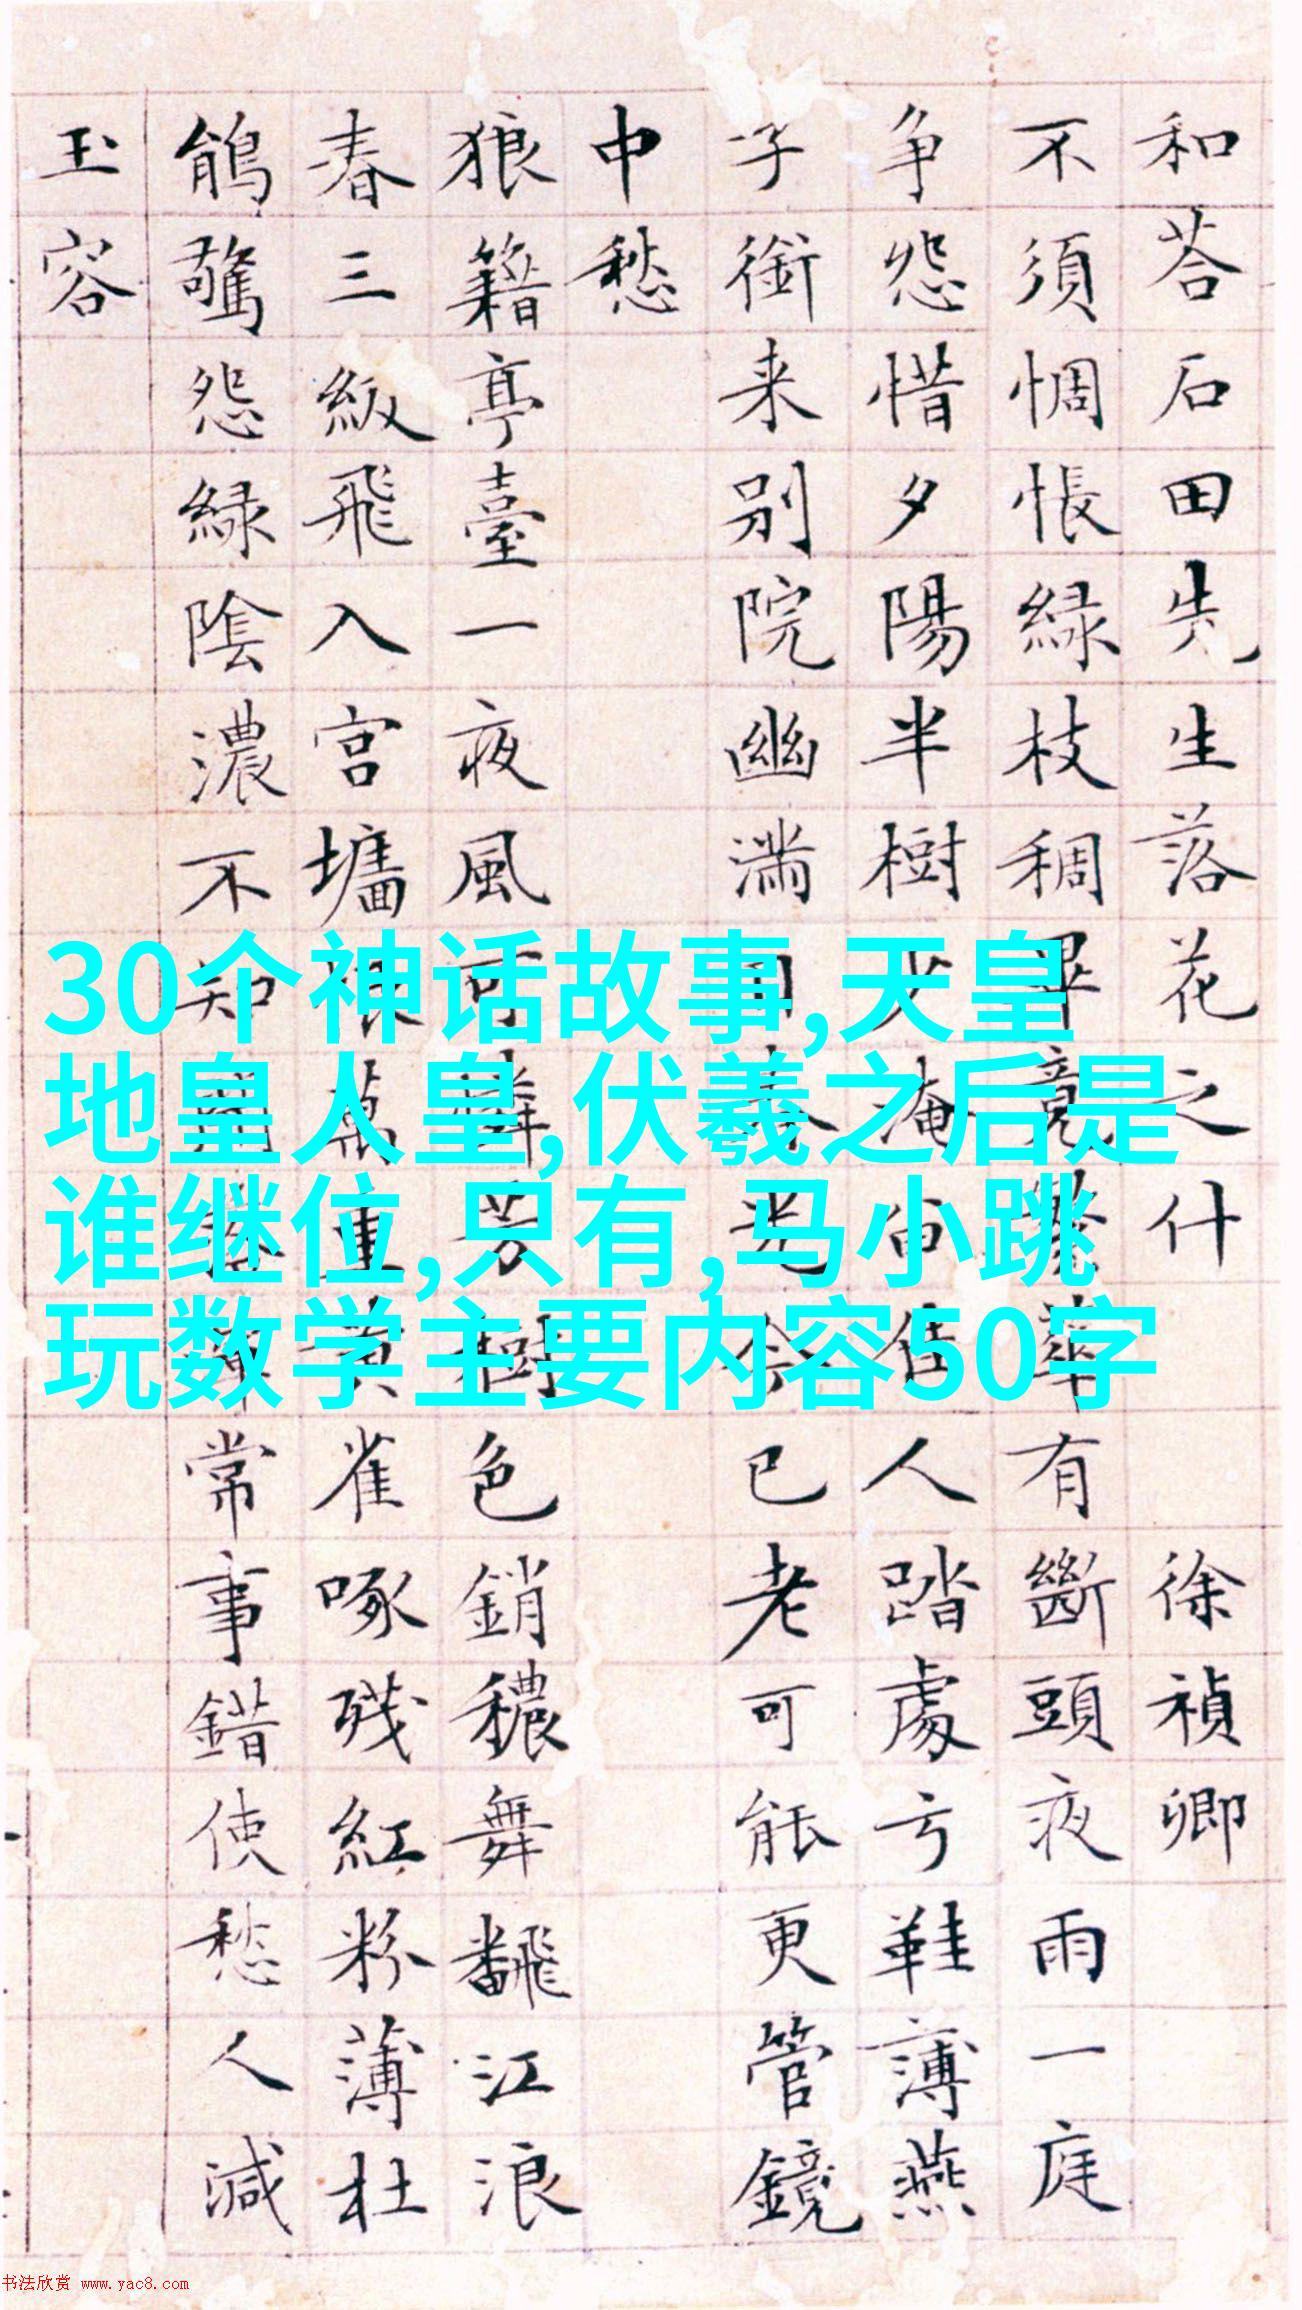 和荅石田先生落花之什 徐禎卿
不須惆悵綠枝稠畢竟繁華有斷頭夜雨一庭
争怨惜夕陽半樹少淹佳人踏處弓鞋薄燕
子銜来别院幽滿光已老可能更管鏡
中愁
狼籍亭臺一夜風可憐芳樹色銷穠舞飜江浪
春三級飛入宫墻恨萬重黄雀啄殘紅粉薄杜
鵑驚怨緑陰濃不知常事錯使愁人減
玉容
30个神话故事,天皇
地皇人皇,伏羲之后是
谁继位,只有,马小跳
玩数学主要内容50字
书法欣赏 www.yac8.com